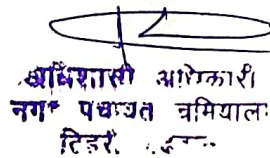 अधिशासी अधिकारी
नगर पंचायत चमियाला
टिहरी